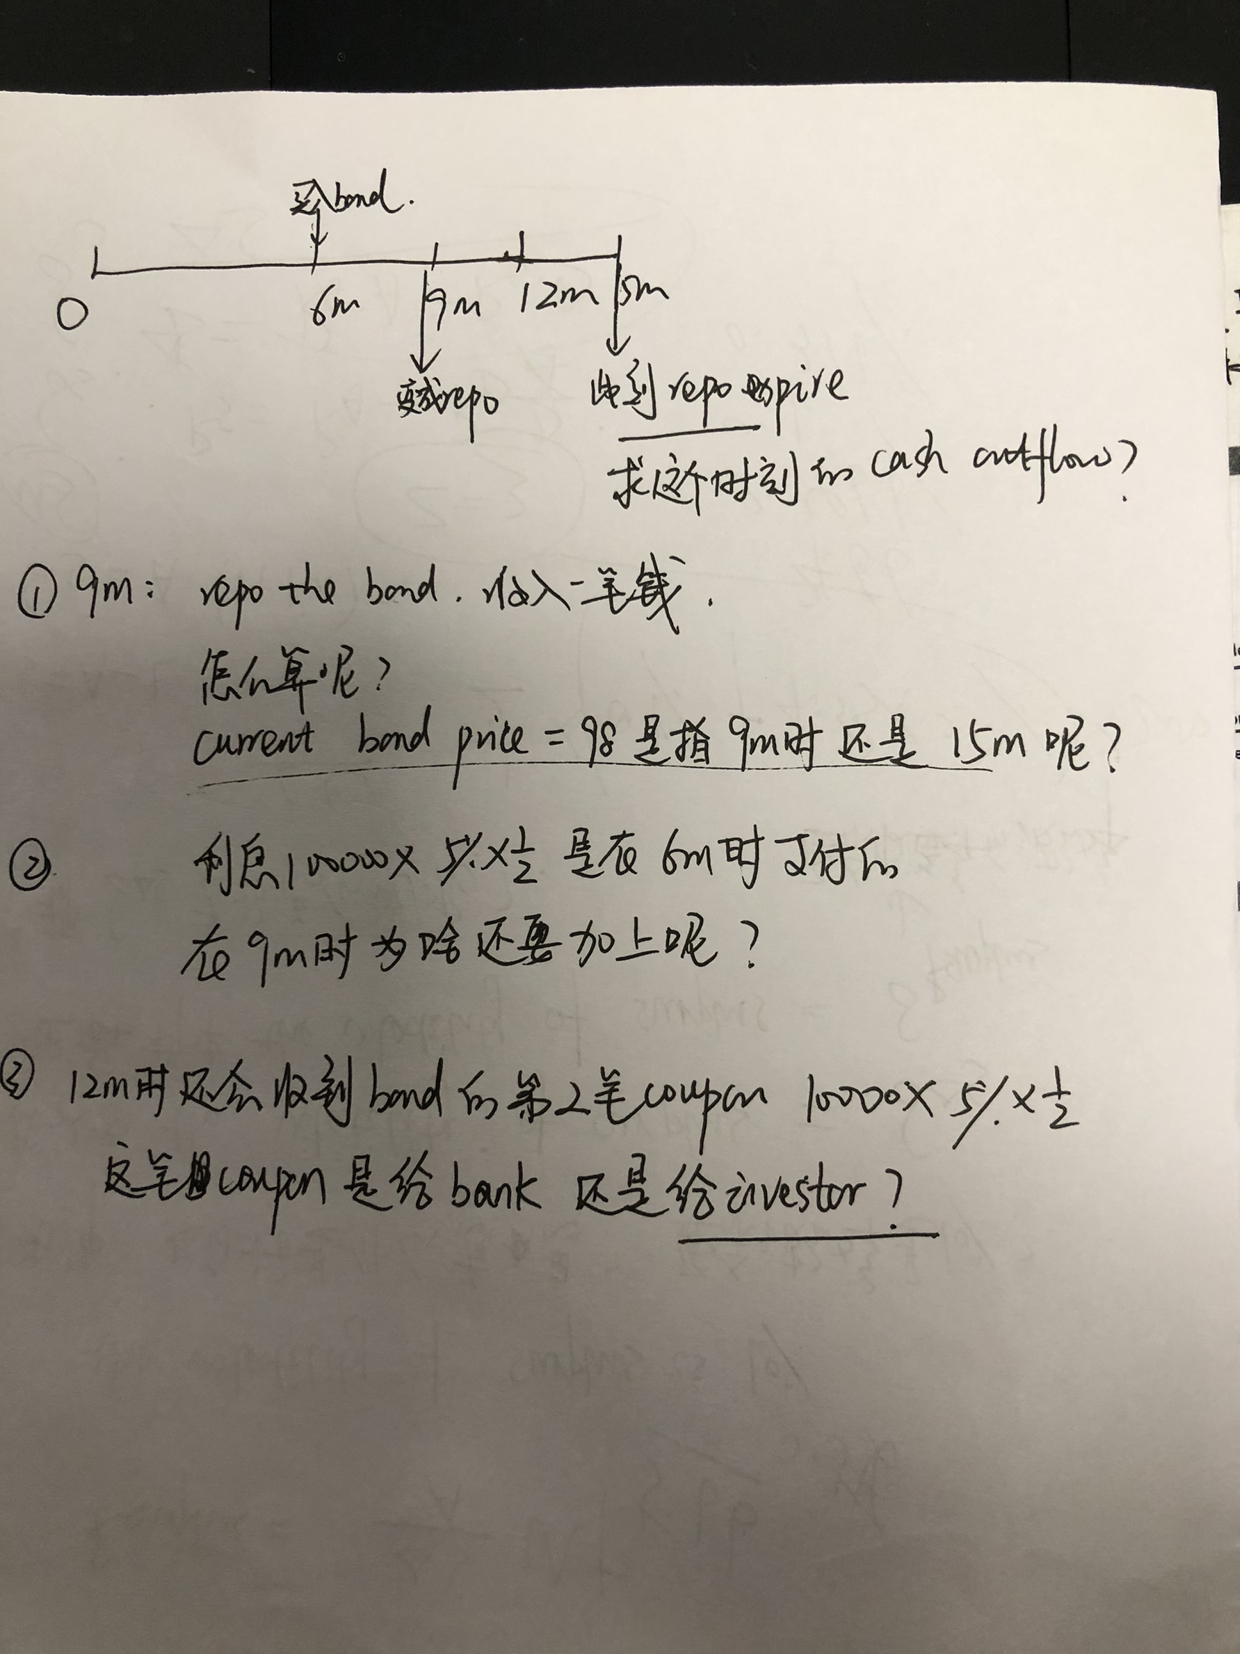 买入bond.
0 6m 9m 12m 15m
变成repo 此刻repo expire
求这个时刻的cash outflow?
① 9m: repo the bond. 收入一笔钱.
怎么算呢?
current bond price = 98 是指 9m时 还是 15m 呢?
② 利息100000× 5%×½ 是在 6m时支付的
在 9m时为啥还要加上呢?
③ 12m时还会收到bond的第2笔coupon 100000× 5%×½
这笔coupon是给bank 还是给investor?